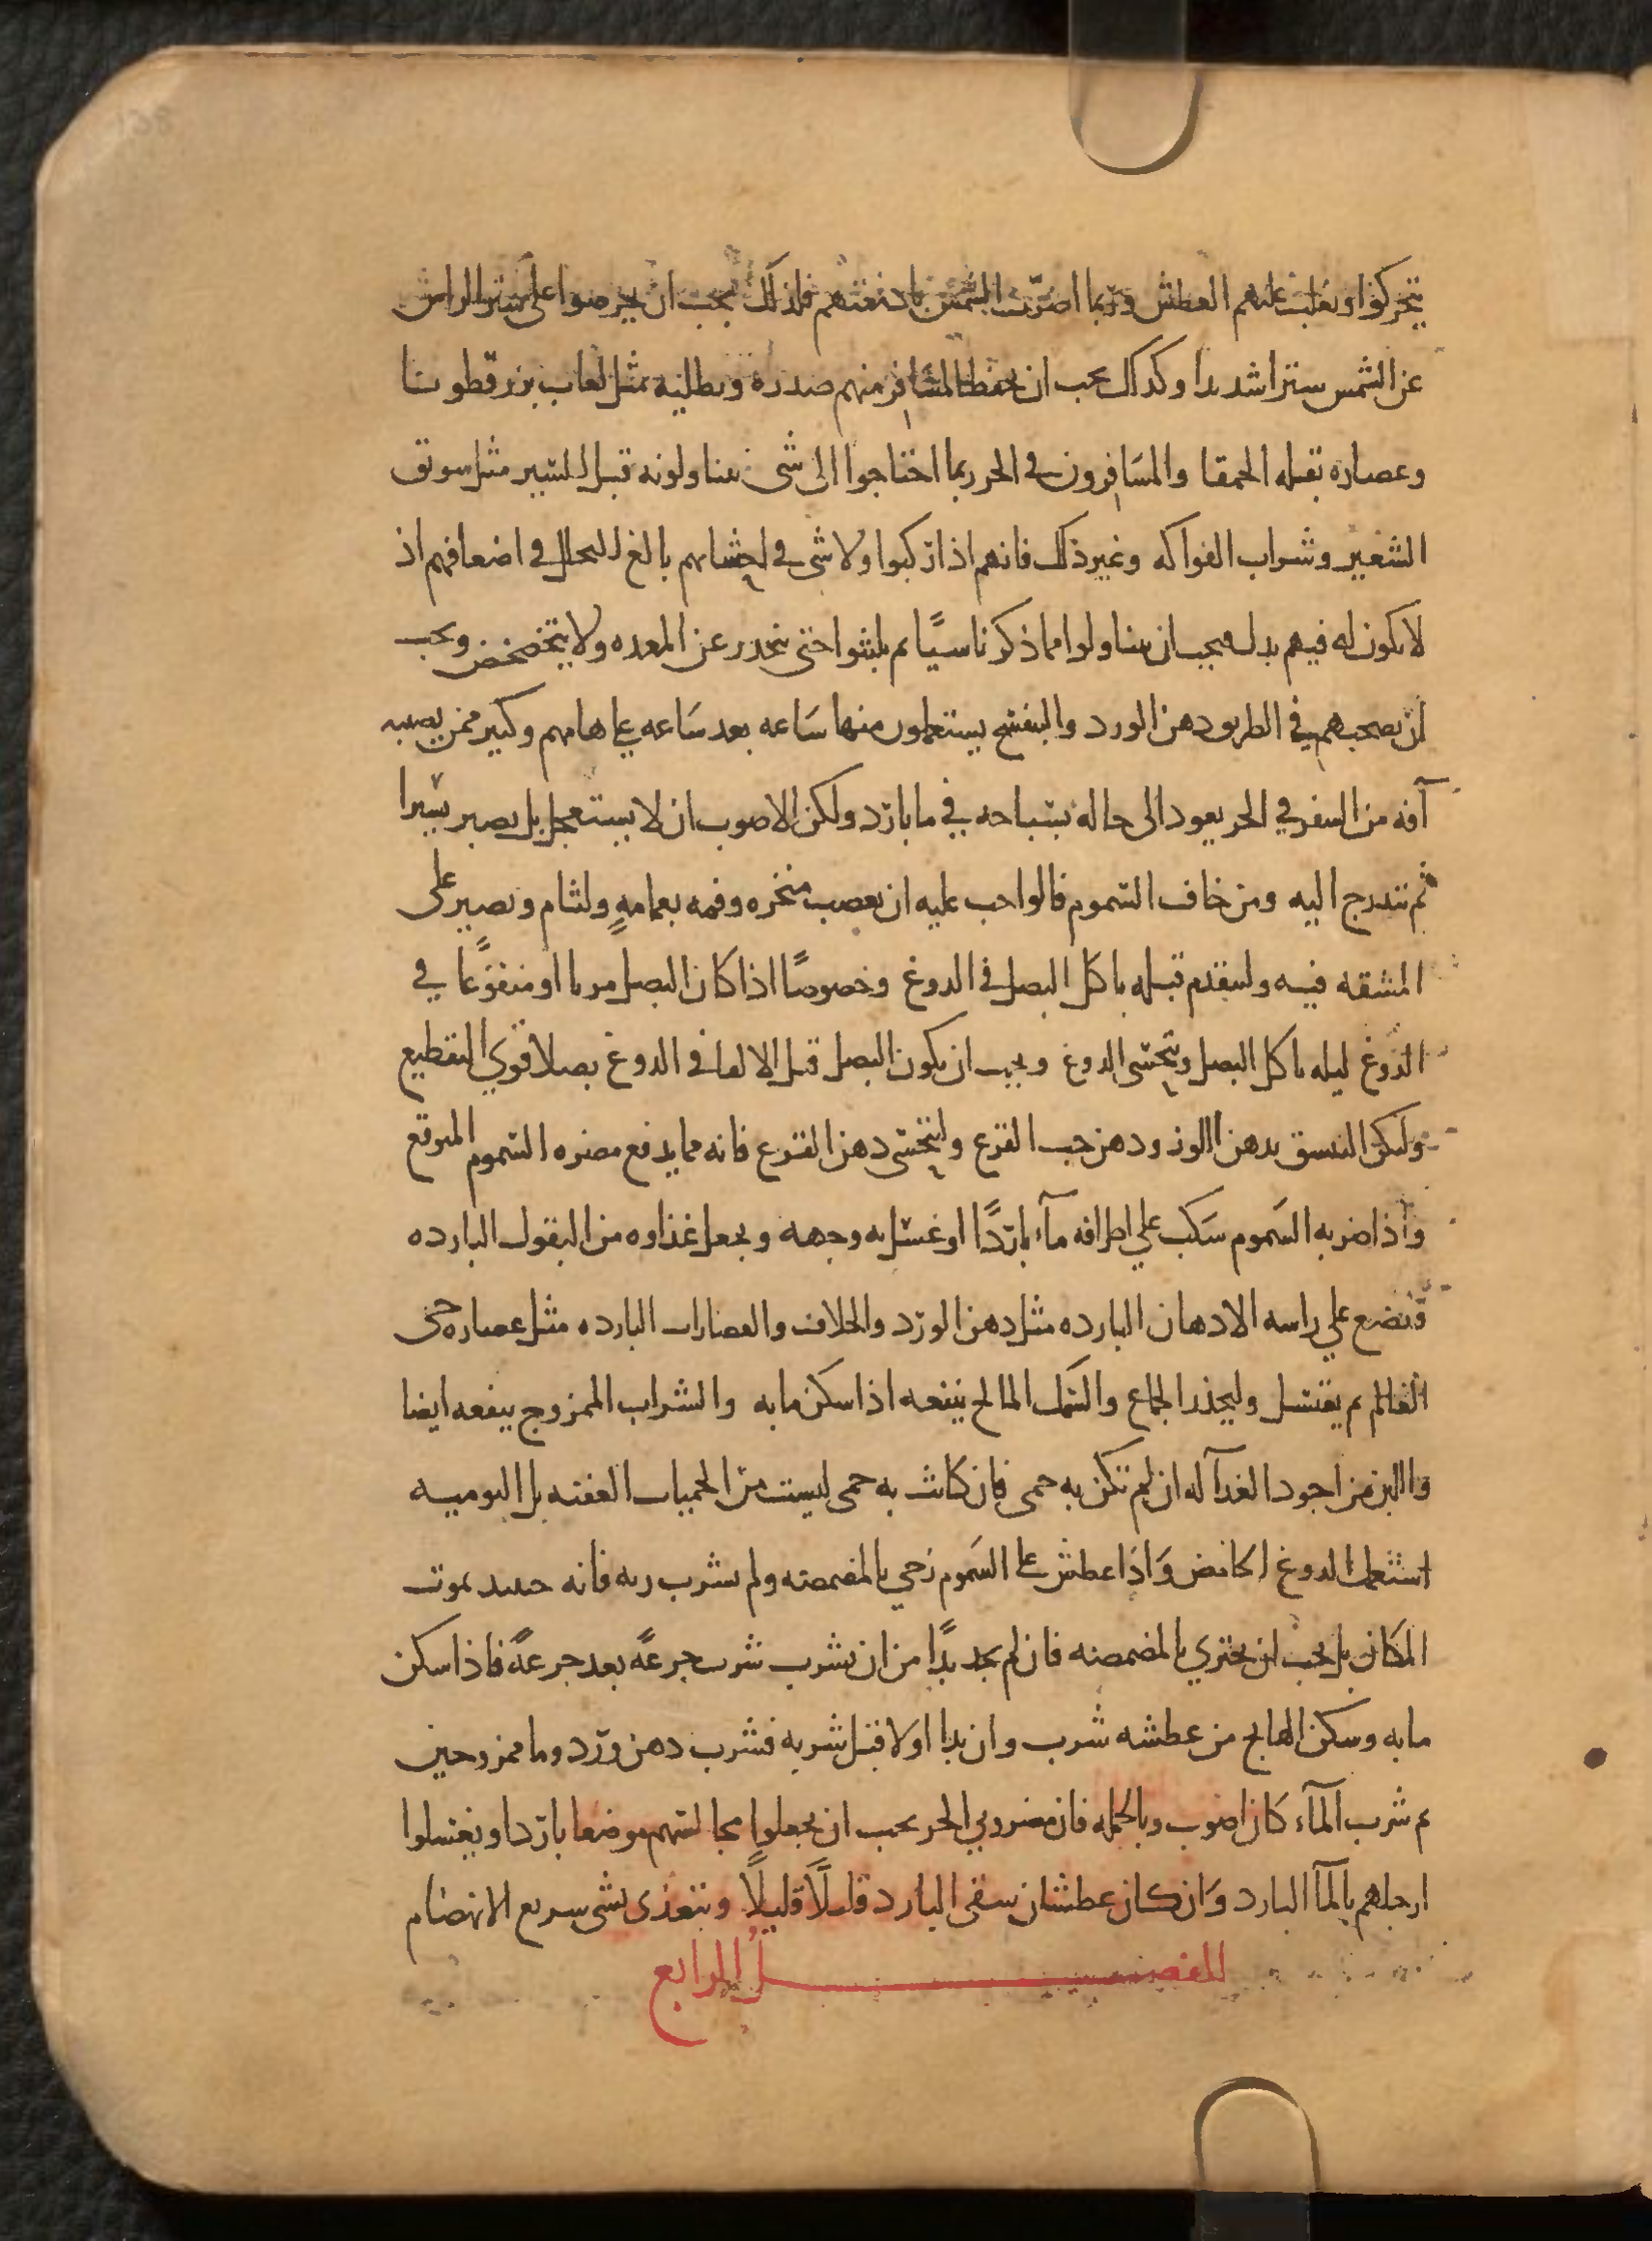 يتحركوا ويغلب عليهم العطش وربما اضرت الشمس بادمغتهم فلذلك يجب ان يحرصوا على ستر الراس
عن الشمس سترا شديدا وكذلك يجب ان يحفظ المسافر منهم صدره ويطليه بمثل لعاب بزر قطونا
وعصاره بقله الحمقا والمسافرون في الحر ربما احتاجوا الى شى يتناولونه قبل السير مثل سويق
الشعير وشراب الفواكه وغير ذلك فانهم اذا ركبوا ولا شى في احشايهم بالغ التحلل في اضعافهم اذ
لا يكون له فيهم بدل فيجب ان يتناولوا مما ذكرنا شيًا ثم يلبثوا حتى ينحدر عن المعده ولا يتخضخض ويجب
ان يصحبهم في الطريق دهن الورد والبنفسج يستعملون منها سَاعه بعد سَاعه على هامهم وكثير ممن يصيبه
آفه من السفر في الحر يعود الى حاله بسباحه في ما بارد ولكن الاصوب ان لا يستعجل بل يصبر يسيرا
ثم يتدرج اليه ومن خاف السموم فالواجب عليه ان يعصب منخره وفمه بعمامهٍ ولثام ويصبر على
المشقه فيه وليتقدم قبله باكل البصل في الدوغ وخصوصًا اذا كان البصل مربا او منقوعًا في
الدوغ ليله ياكل البصل ويتحسى الدوغ ويجب ان يكون البصل قبل الالقا في الدوغ بصلا قوي التقطيع
وليكن التنشق بدهن االوز ودهن حب القرع وليتحسى دهن القرع فانه مما يدفع مضره السموم المتوقع
واذا ضربه السَموم سَكب على اطرافه مآء باردًا او غسل به وجهه ويجعل غذاوه من البقول البارده
ويضع على راسه الادهان البارده مثل دهن الورد والخلاف والعصارات البارده مثل عصاره حى
العالم ثم يغتسل وليحذر الجماع والسَمك المالح ينفعه اذا سكن ما به والشراب الممزوج ينفعه ايضا
واالبن من اجود الغدآ له ان لم تكن به حمى فان كانت به حمى ليست من الحميات العفنه بل اليوميه
استعمل الدوغ الحامض وَاذا عطش على السَموم زجي بالمضمضه ولم يشرب ريه فانه حينيد يموت
المكان بل يجب ان يجتزي بالمضمضه فان لم يجد بدًا من ان يشرب شرب جرعةً بعد جرعةً فاذا سكن
ما به وسكن الهايج من عطشه شرب وان بدا اولا قبل شربه فشرب دهن ورد وما ممزوجين
ثم شرب المآء كان اصوب وبالجمله فان مضروبي الحر يجب ان يجعلوا مجالسهم موضعا باردا ويغسلوا
ارجلهم بالمآ البارد وَان كان عطشان سقى البارد قليلًا قليلًا ويتغذى بشى سريع الانهضام
الفصل الرابع